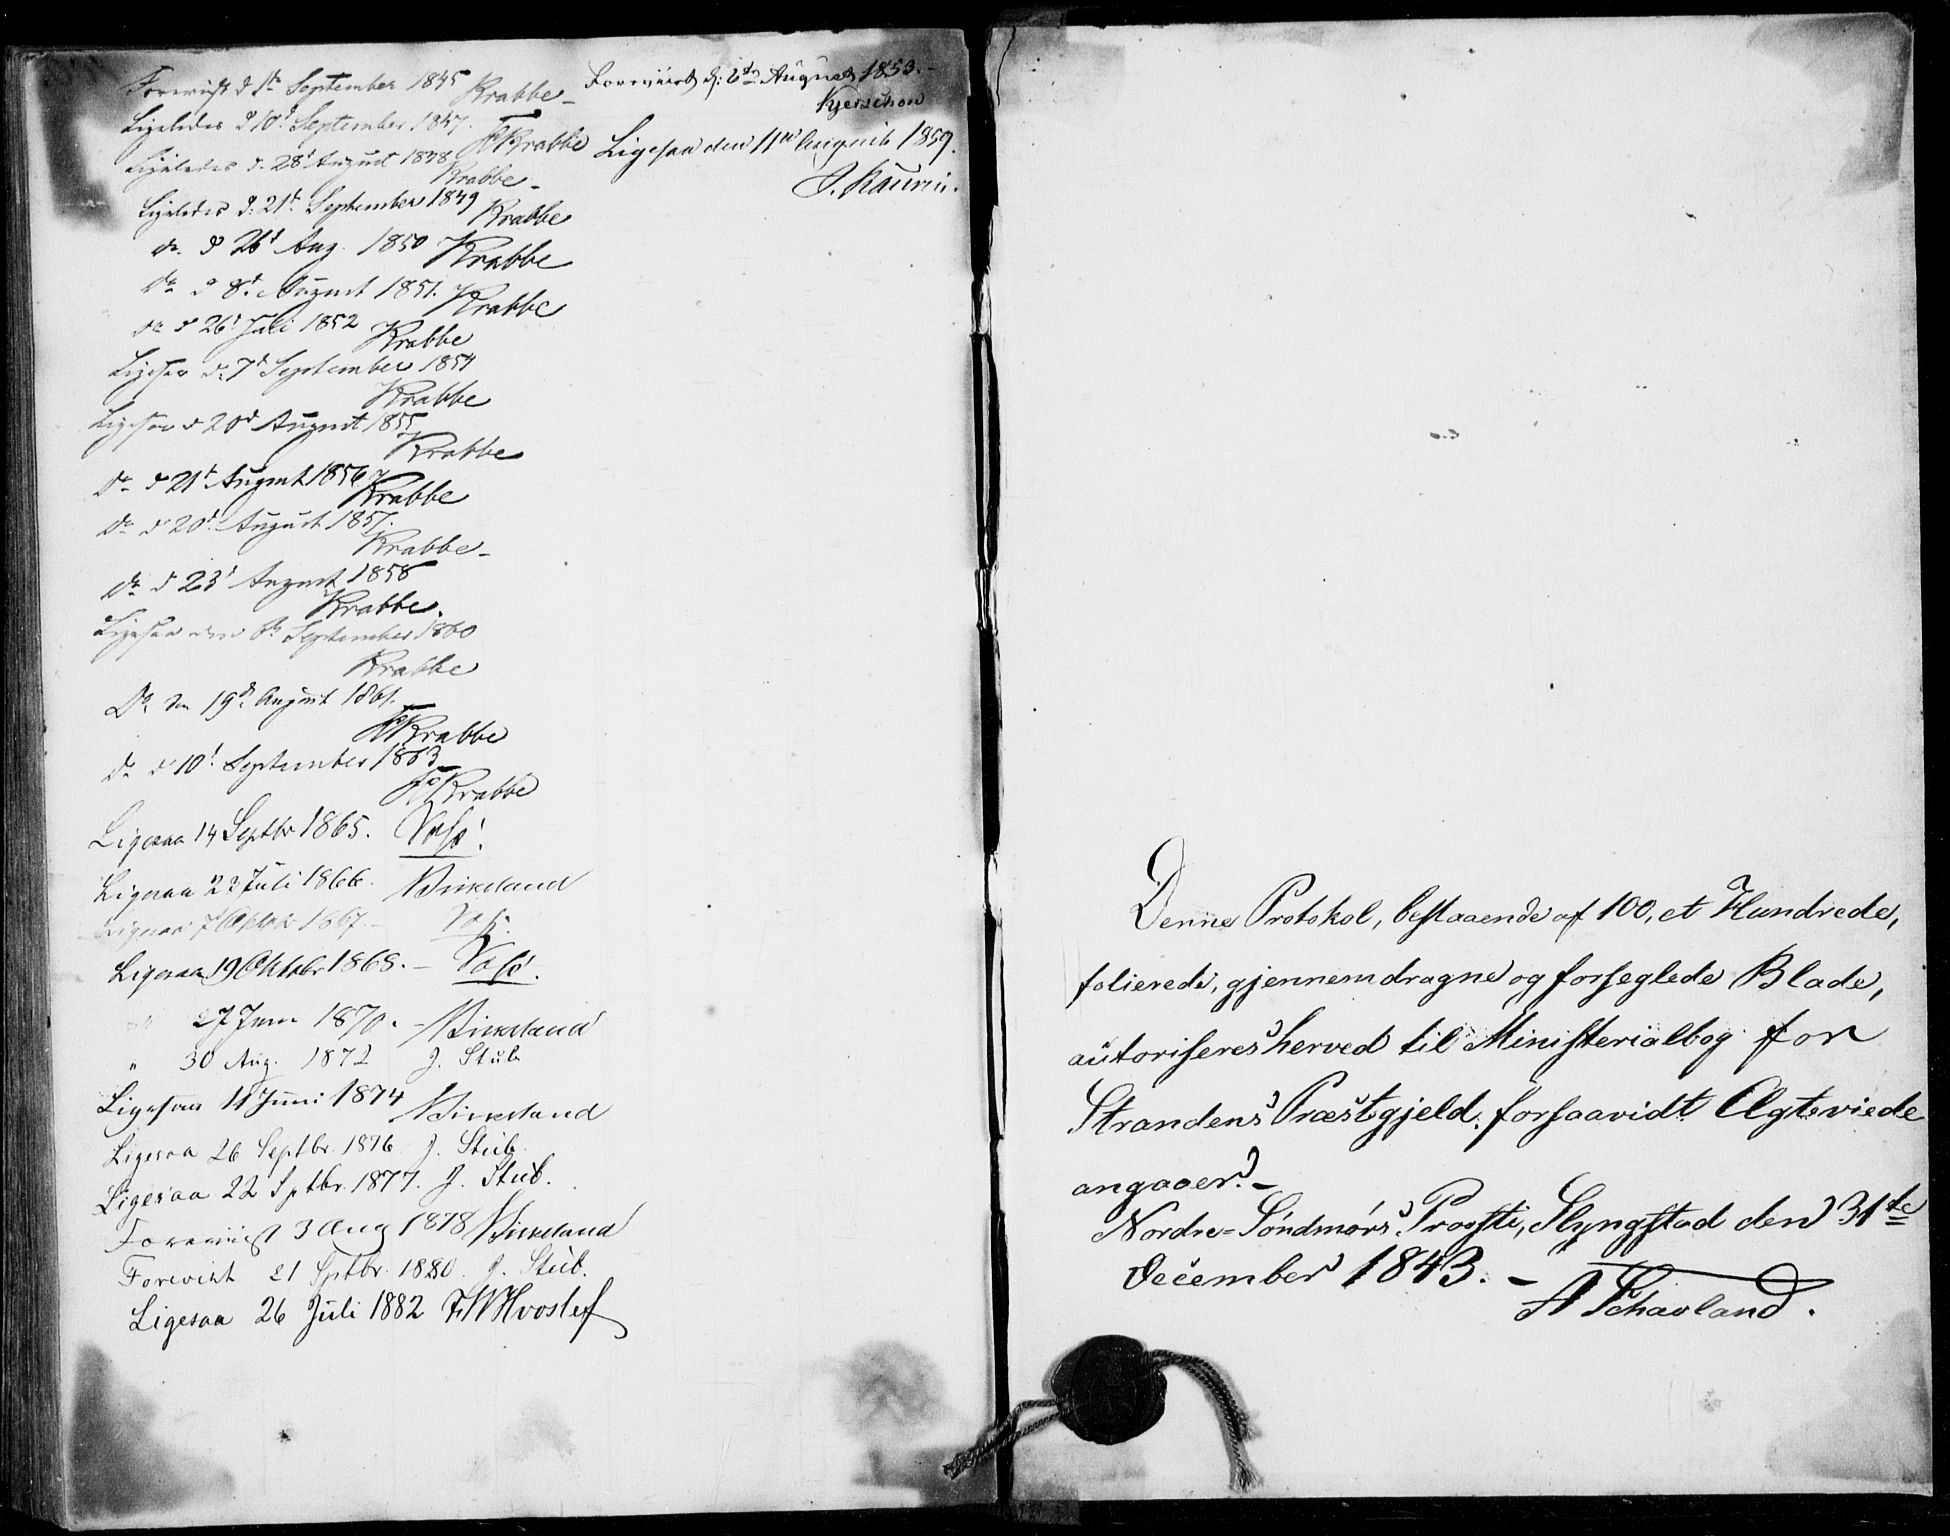 Foreviist d 1te September 1845 Krabbe
Ligeledes d 10d September 1847. FKrabbe
Ligeledes d. 28d August 1848 Krabbe
Ligeledes d: 21d. September 1849 Krabbe
do d 26d Aug. 1850 Krabbe
do d 8d. August 1851. Krabbe
do d 26d Juli 1852 Krabbe
Ligesaa d. 7d September 1854
Krabbe
Ligesaa d 20d August 1855
Krabbe
do d 21d August 1856
Krabbe
do d 20d August 1857.
Krabbe
do d 23d August 1858
Krabbe.
Ligesaa den 6te September 1860
Krabbe
Do den 19de August 1861.
FKrabbe
do d 10d. September 1863
FKrabbe
Ligesaa 14 Septbr 1865.
Ligesaa 22 Juli 1866. Birkeland
Ligesaa 7 Oktbr 1867.
Ligesaa 19 Oktobr 1868.
" 27 Juni 1870. Birkeland
" 30 Aug. 1872 J. Stub
Ligesaa 11 Juni 1874 Birkeland
Ligesaa 26 Septbr. 1876 J. Stub.
Ligesaa 22 Sptbr. 1877. J. Stub.
Foreviist 3 Aug 1878 Birkeland
Forevist 21 Sptbr. 1880. J. Stub.
Ligesaa 26 Juli 1882 FWHvoslef
Foreviist d: 2den August 1853.
Kjerschow
Ligesaa den 11te August 1859.
J. Kaurin.
Denne Protokol, bestaaende af 100, et Hundrede,
folierede, gjennemdragne og forseglede Blade,
autoriseres herved til Ministerialbog for
Strandens Præstegjeld, forsaavidt Ægteviede
angaaer.
Nordre-Søndmørs Provsti, Slyngstad den 31te
December 1843.
A Schavland.